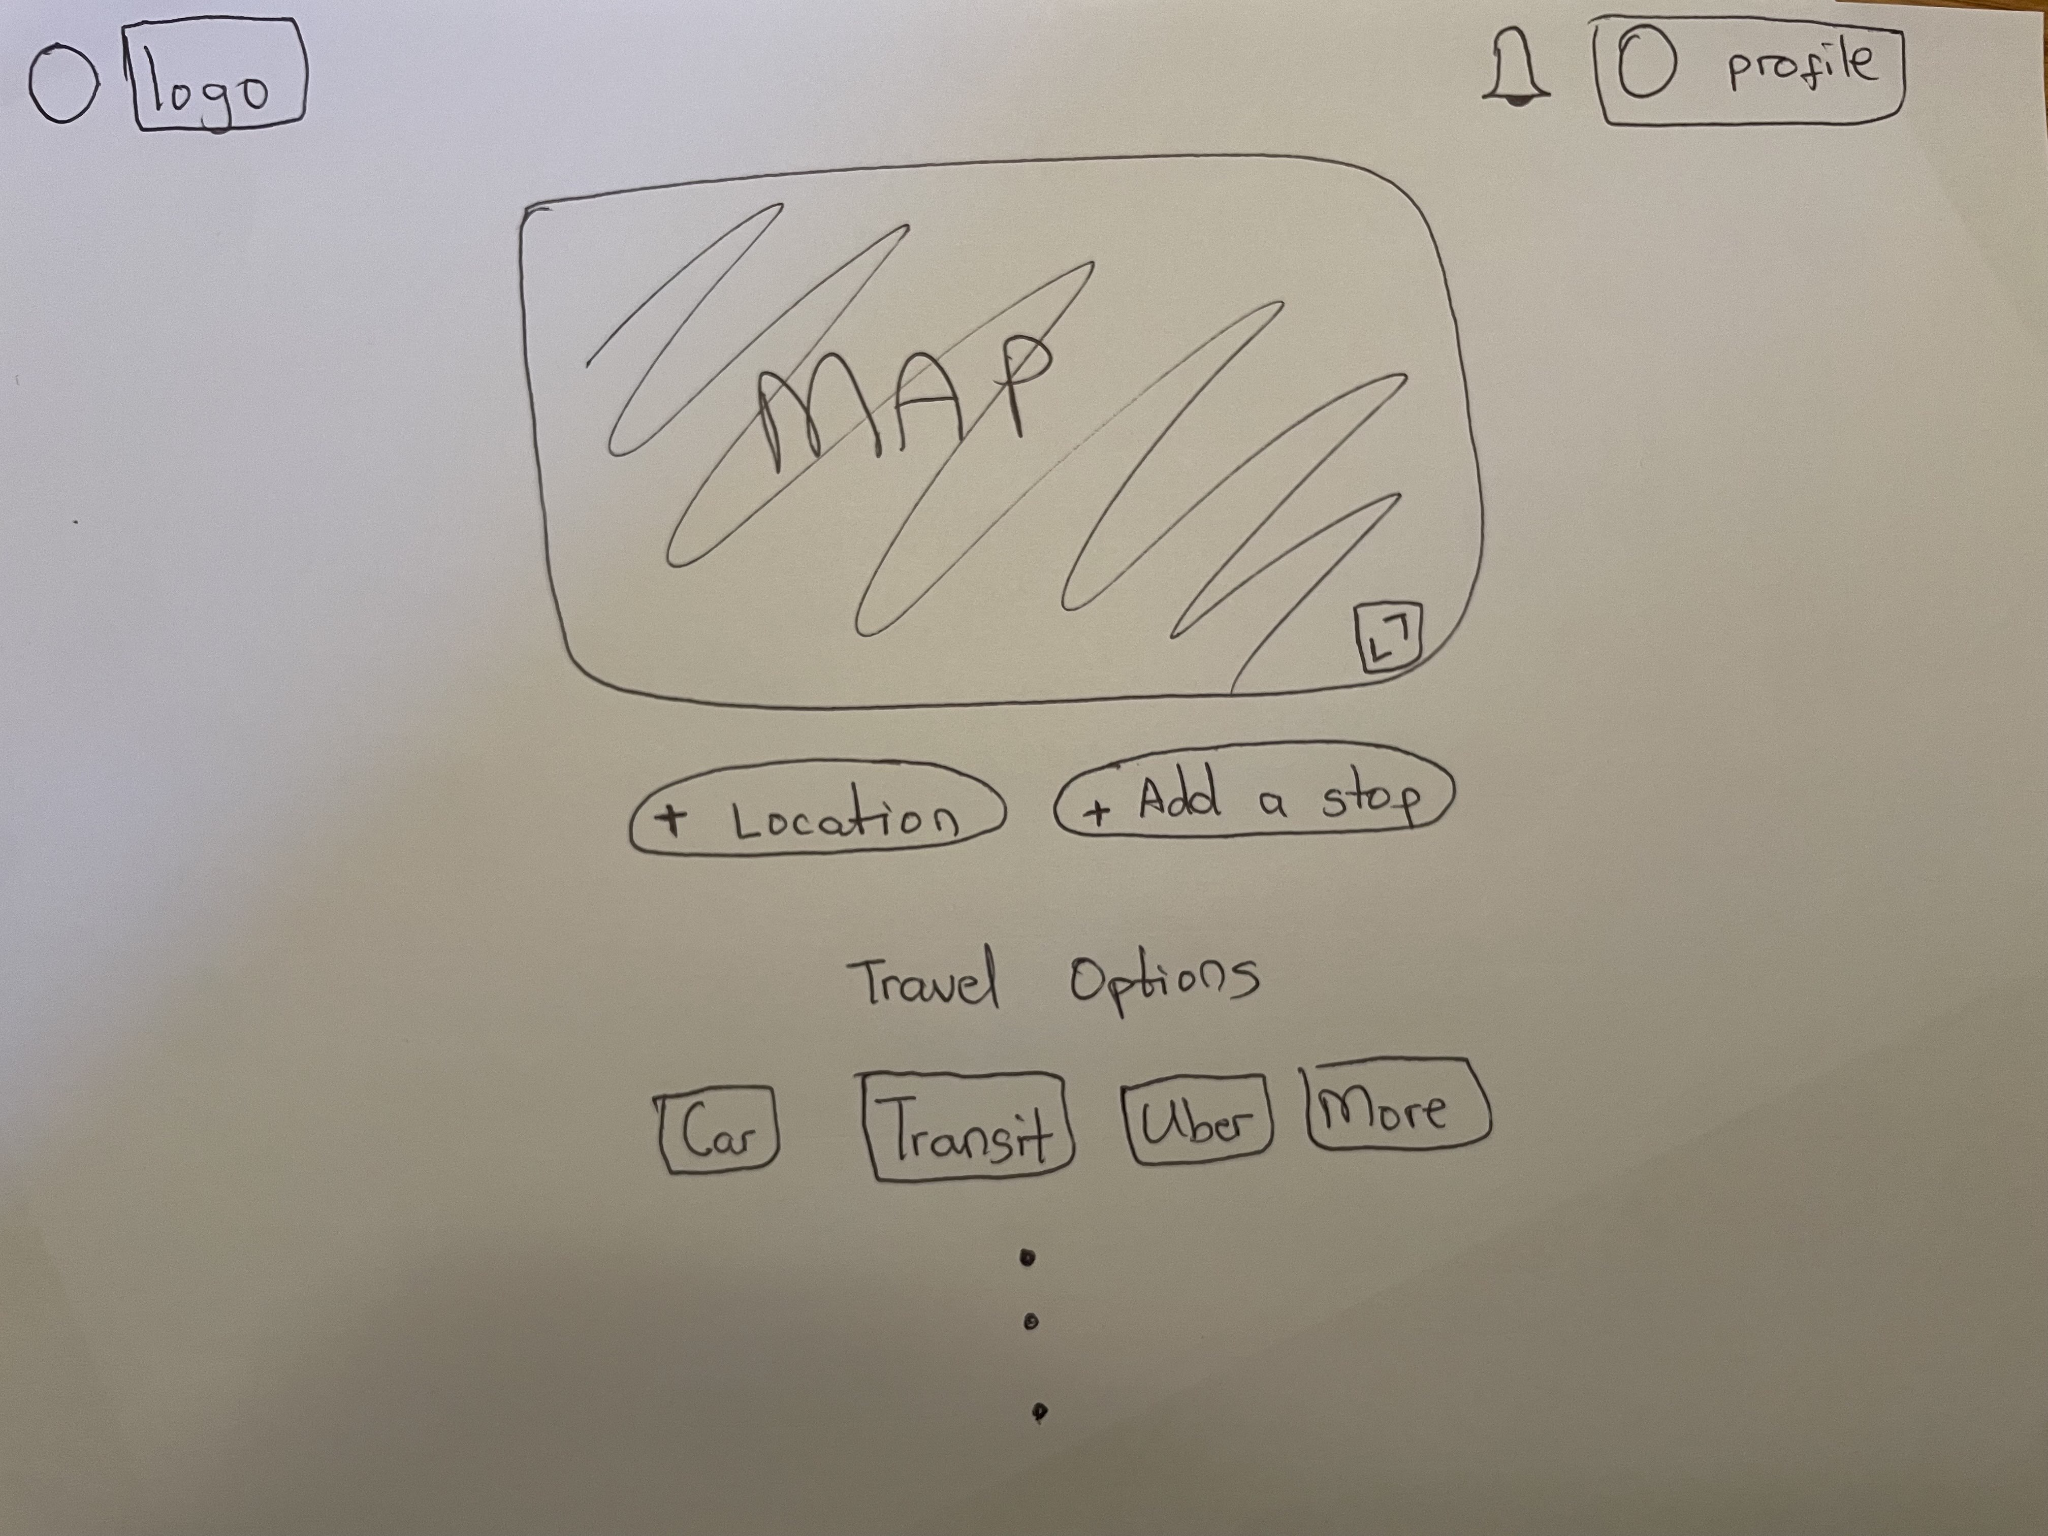 logo
profile
MAP
+ Location
+ Add a stop
Travel Options
Car
Transit
Uber
More